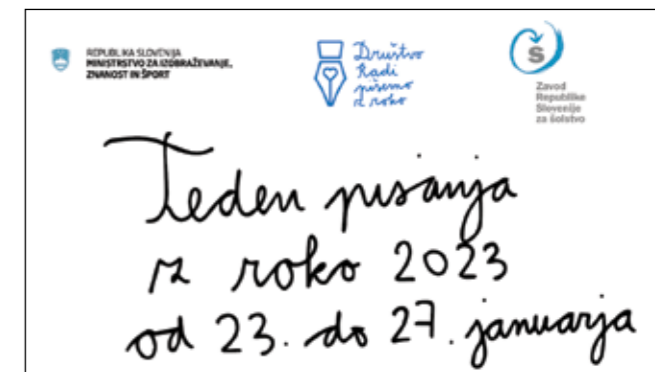 REPUBLIKA SLOVENIJA
MINISTRSTVO ZA IZOBRAŽEVANJE,
ZNANOST IN ŠPORT
Društvo
Radi
pišemo
z roko
Š
Zavod
Republike
Slovenije
za šolstvo
Teden pisanja
z roko 2023
od 23. do 27. januarja